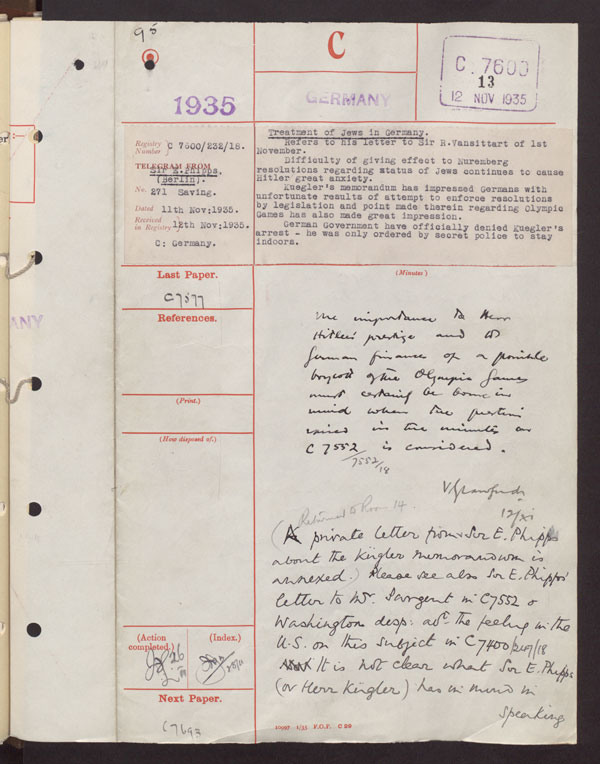 95
C
1935
GERMANY
C. 7600
13
12 NOV 1935
Registry Number
C 7600/232/18.
TELEGRAM FROM
Sir E. Phipps.
(Berlin).
No. 271 Saving.
Dated 11th Nov: 1935.
Received in Registry 12th Nov: 1935.
C: Germany.
Treatment of Jews in Germany.
Refers to his letter to Sir R. Vansittart of 1st
November.
Difficulty of giving effect to Nuremberg
resolutions regarding status of Jews continues to cause
Hitler great anxiety.
Kuegler's memorandum has impressed Germans with
unfortunate results of attempt to enforce resolutions
by legislation and point made therein regarding Olympic
Games has also made great impression.
German Government have officially denied Kuegler's
arrest - he was only ordered by secret police to stay
indoors.
Last Paper.
C7577
References.
(Print.)
(How disposed of.)
(Action completed.)
(Index.)
26
Next Paper.
C7693
(Minutes)
The importance to Herr
Hitler's prestige and to
German finance of a possible
boycott of the Olympic Games
must certainly be borne in
mind when the question
raised in the minutes on
C 7552 is considered.
7552/18
12/xi
Returned to Room 14.
(A private letter from Sir E. Phipps
about the Kügler memorandum is
annexed.) Please see also Sir E. Phipps'
letter to Mr. Sargent in C7552 &
Washington desp: abt the feeling in the
U.S. on this subject in C7400/
It is not clear what Sir E. Phipps
(or Herr Kügler) has in mind in
speaking
ANY
F.O.P.